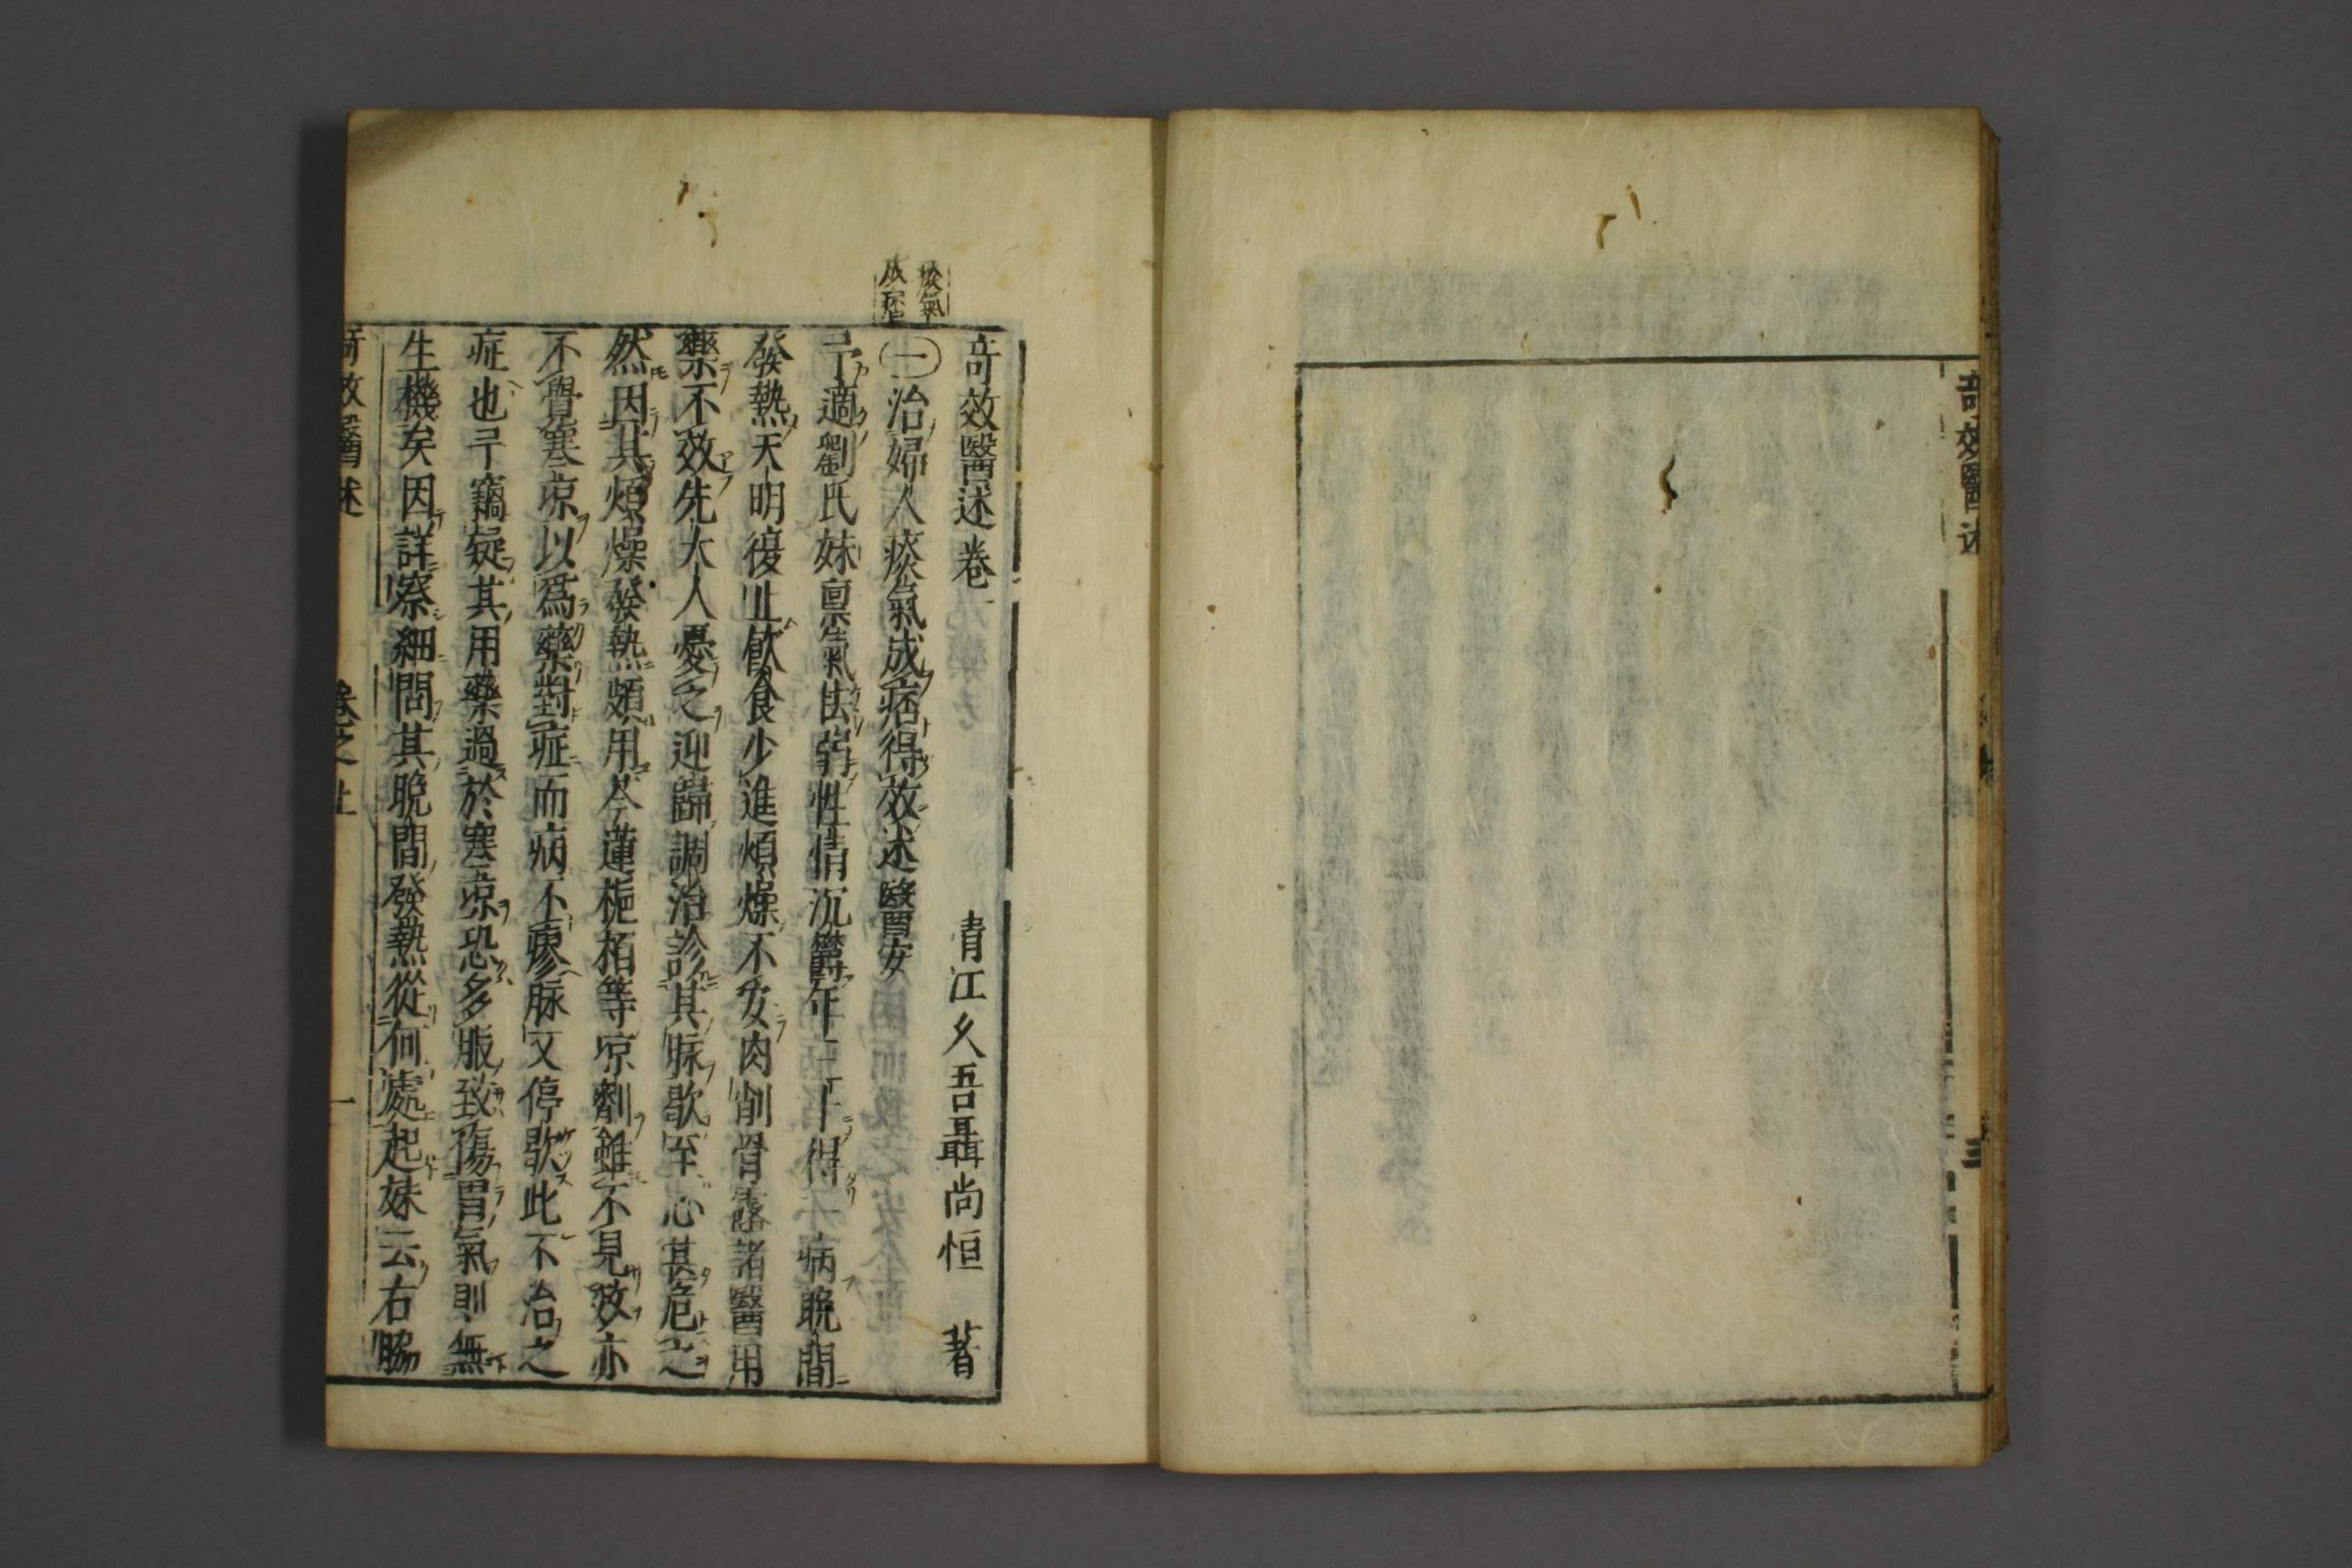 奇效醫述
三
痰氣
成痞
奇效醫述卷一
清江久吾聶尚恒 著
一治婦人痰氣成痞得效述醫案
予適劉氏妹禀氣怯弱性情沉鬱年二十得一病晩間
發熱天明復止飮食少進煩燥不安肉削骨露諸醫用
藥不效先大人憂之迎歸調治診其脉歇至心甚危之
然因其煩燥發熱頗用芩蓮梔柏等凉劑雖不見效亦
不覺寒凉以爲藥對症而病不瘳脉又停歇此不治之
症也予竊疑其用藥過於寒凉恐多服致傷胃氣則無
生機矣因詳察細問其晩間發熱從何處起妹云右脇
奇效醫述 卷之上 一